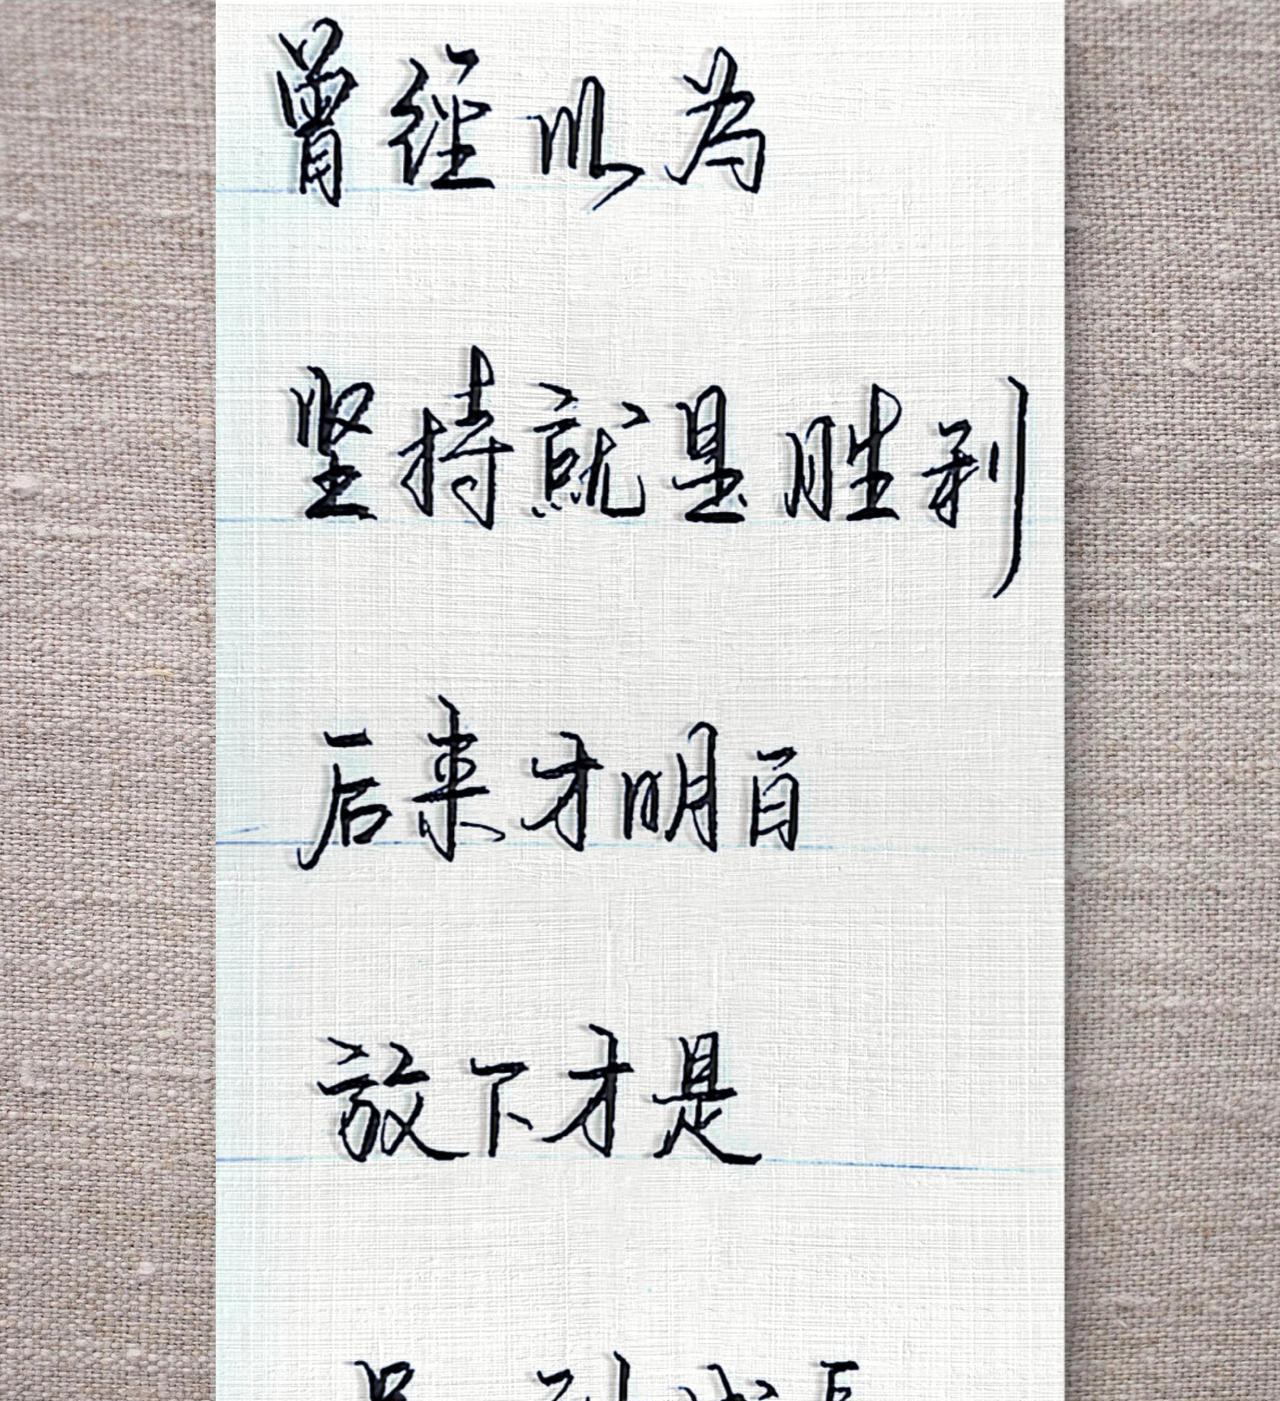 曾经以为
坚持就是胜利
后来才明白
放下才是